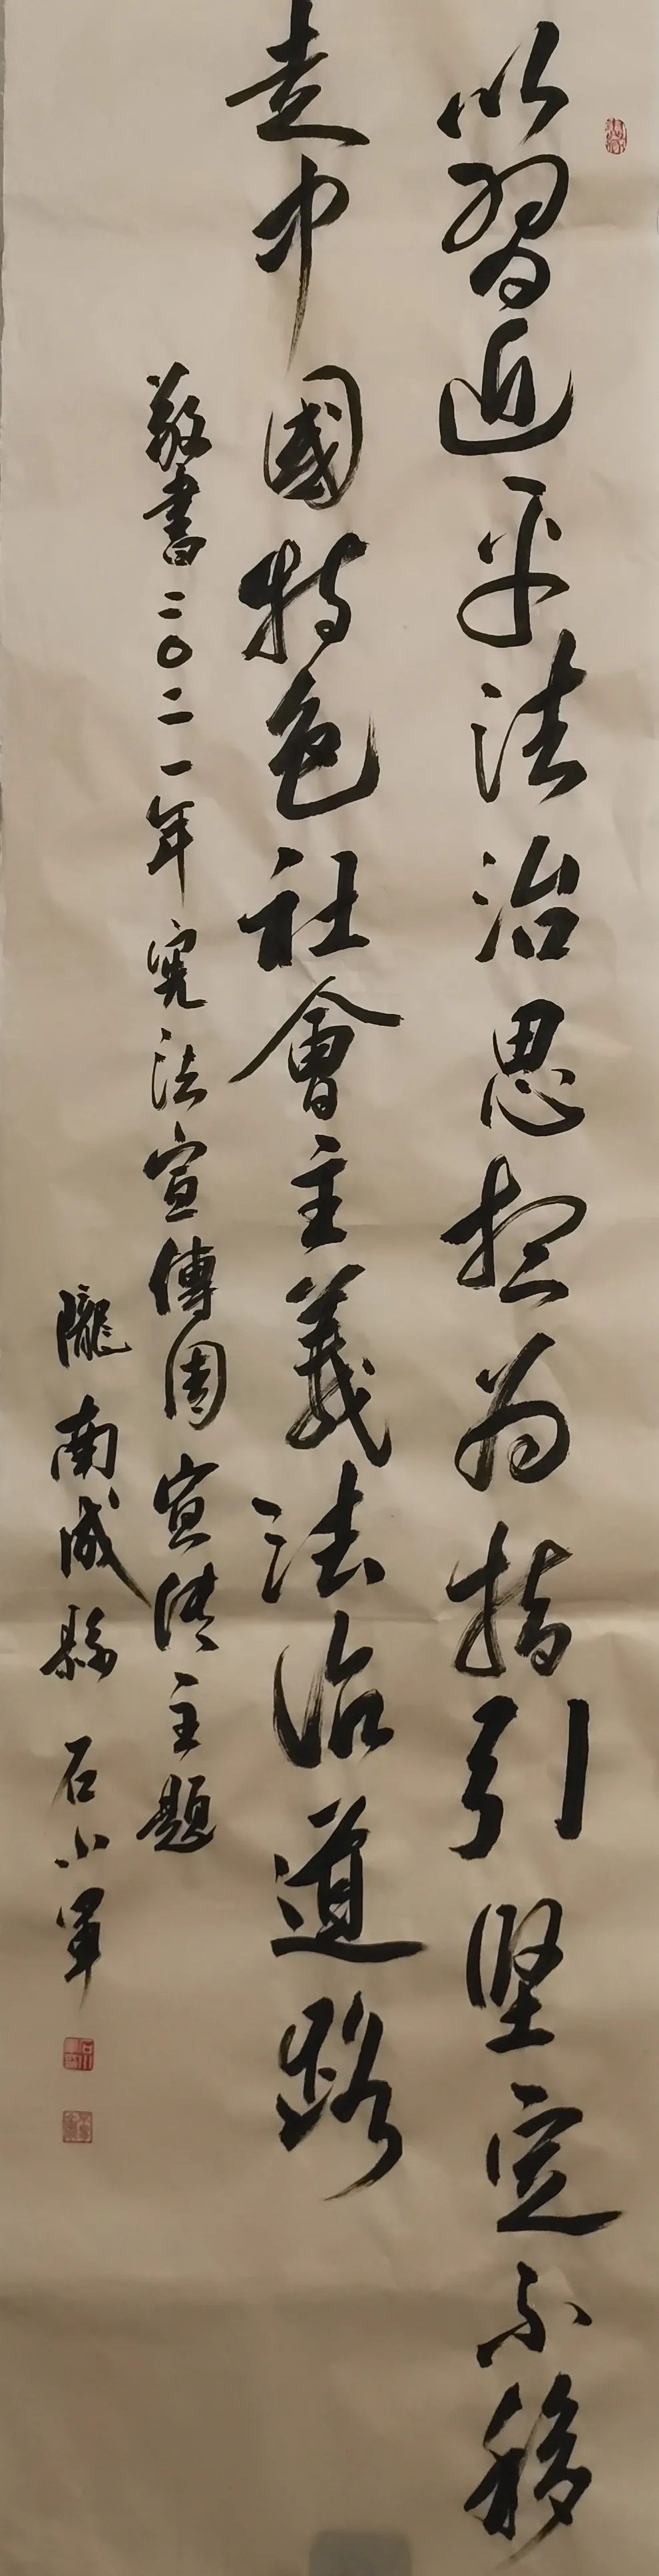 以習近平法治思想为指引坚定不移
走中國特色社會主義法治道路
敬書二〇二一年宪法宣傳周宣传主題
隴南成縣 石小軍